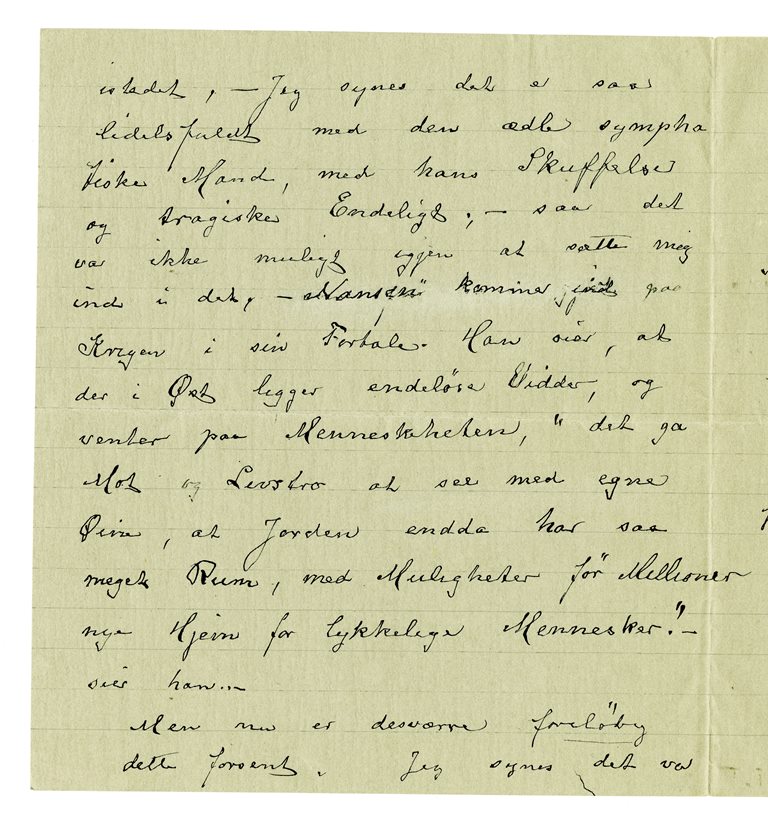 istedet, — Jeg synes det er saa
lidelsfuldt med den ædle sympha
tiske Mand, med hans Skuffelser
og tragiske Endeligt; — saa det
var ikke muligt igjen at sætte mig
ind i det, — Nansen kommer ind paa
Krigen i sin Fortale. Han sier, at
der i Øst ligger endelöse Vidder, og
venter paa Menneskeheten, " det ga
Mot og Livstro at see med egne
Øine, at Jorden endda har saa
meget Rum, med Muligheter för Millioner
nye Hjem for lykkelige Mennesker!" —
sier han. —
Men nu er desværre foreløbig
dette forsent. Jeg synes det var